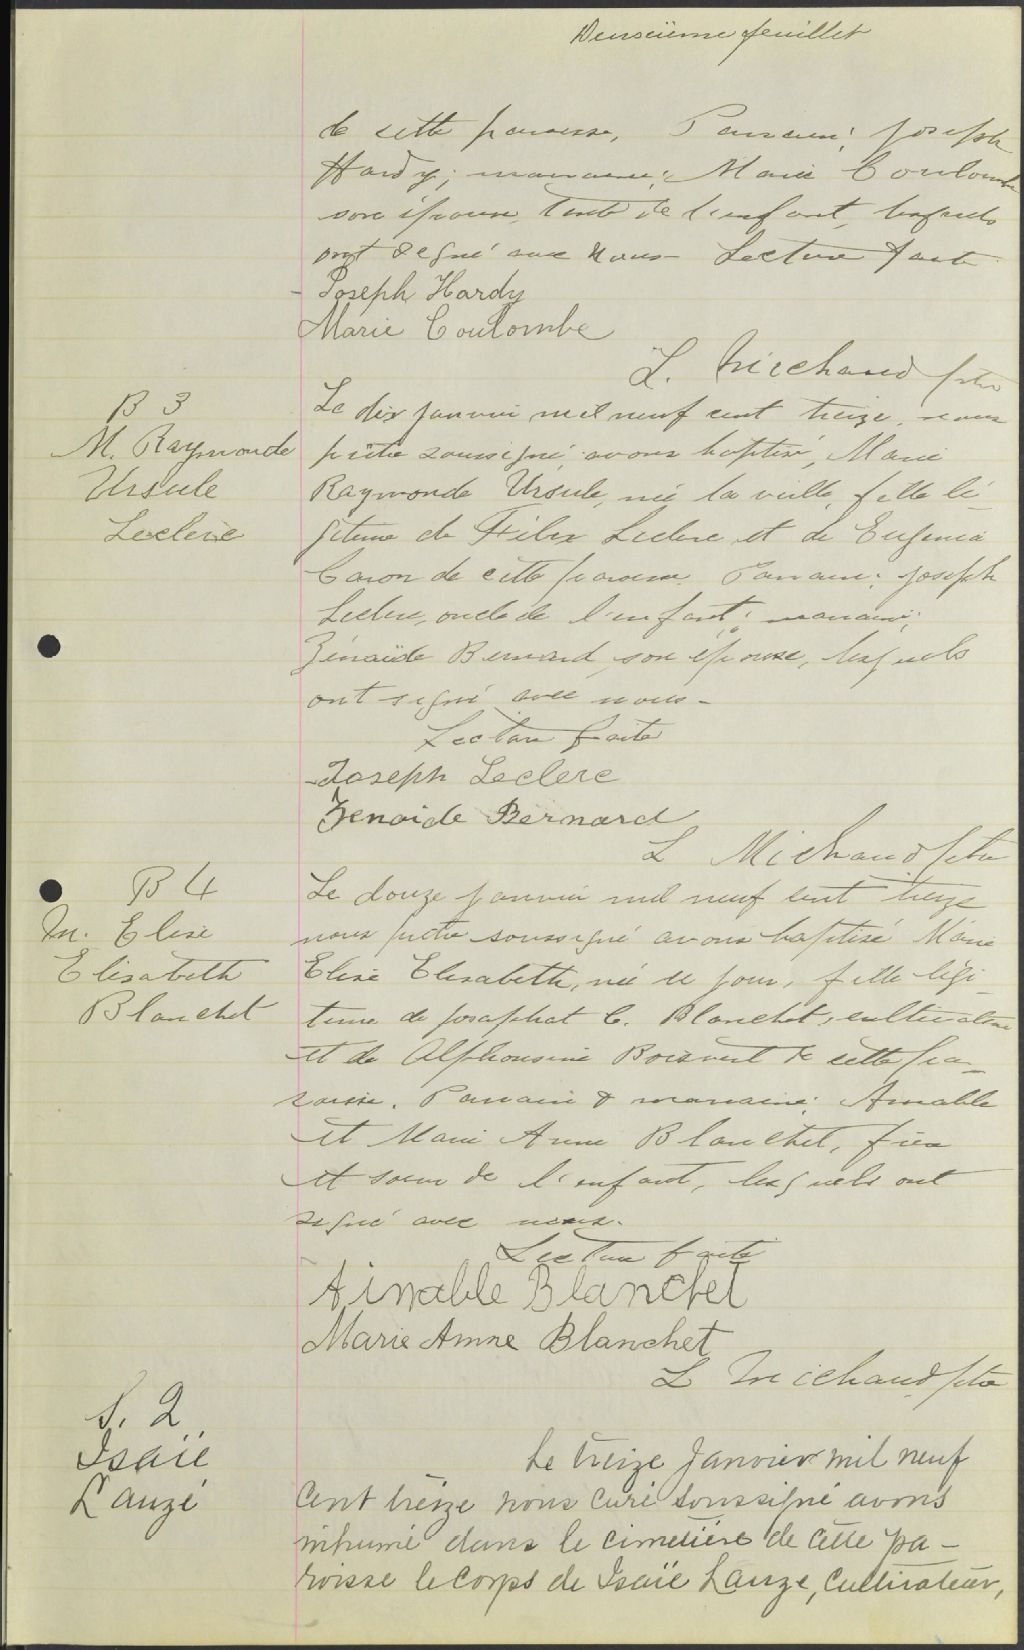 Deuxième feuillet
de cette paroisse, Parrain: Joseph
Hardy; marraine: Marie Coulombe
son épouse, tante de l'enfant, lesquels
ont signé avec nous - Lecture faite
- Joseph Hardy
Marie Coulombe
L. Michaud ptre
B 3
M. Raymonde
Ursule
Leclerc
Le dix janvier mil neuf cent treize, nous
prêtre soussigné avons baptisé, Marie
Raymonde Ursule, née la veille, fille lé-
gitime de Félix Leclerc et de Eugénia
Caron de cette paroisse. Parrain: Joseph
Leclerc, oncle de l'enfant; marraine;
Zénaïde Bernard, son épouse, lesquels
ont signé avec nous -
Lecture faite
- Joseph Leclerc
Zenaide Bernard
L Michaud ptre
B 4
M. Elise
Elisabeth
Blanchet
Le douze janvier mil neuf cent treize
nous prêtre soussigné avons baptisé Marie
Elise Elisabeth, née ce jour, fille légi-
time de Josaphat C. Blanchet, cultivateur
et de Alphonsine Boisvert de cette pa-
roisse. Parrain & marraine: Aimable
et Marie Anne Blanchet, frère
et soeur de l'enfant, lesquels ont
signé avec nous.
Lecture faite
Aimable Blanchet
Marie Anne Blanchet
L Michaud ptre
S. 2
Isaïe
Lauzé
Le treize Janvier mil neuf
Cent treize nous curé soussigné avons
inhumé dans le cimetière de cette pa-
roisse le corps de Isaïe Lauze, Cultivateur,